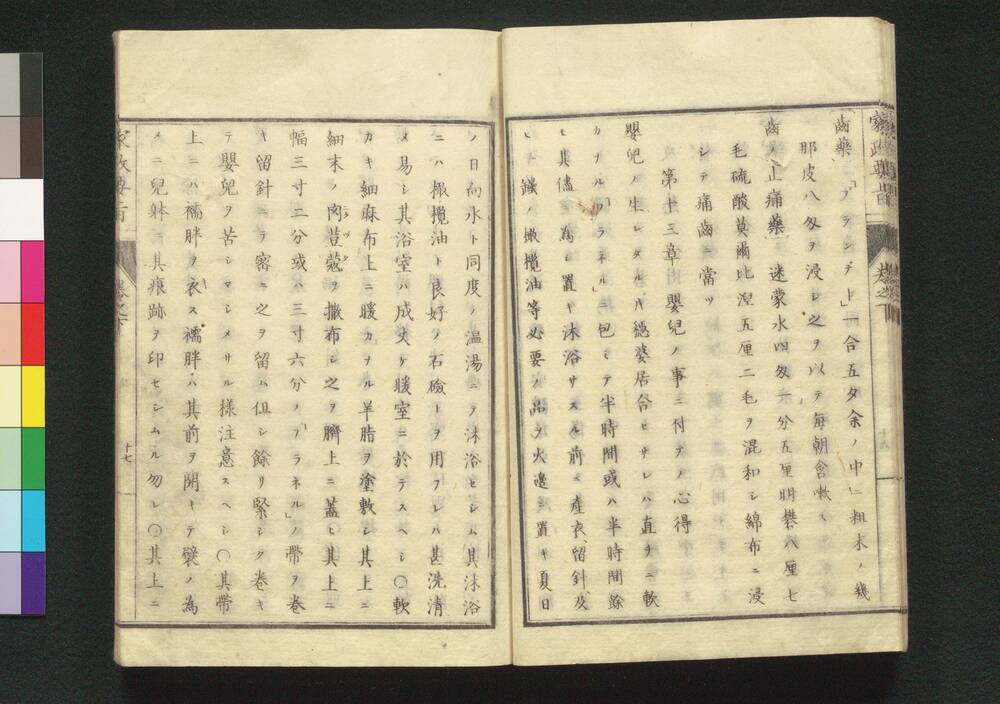 齒藥 「ブランデー」一合五夕余ノ中ニ粗末ノ幾
那皮八匁ヲ浸シ之ヲ以テ毎朝含嗽ス
齒ノ止痛藥 迷蒙水四匁 分五厘明礬八厘七
毛硫酸莫爾比涅五厘二毛ヲ混和シ綿布ニ浸
シテ痛齒ニ當ツ
第十三章 嬰兒ノ事ニ付テノ心得
嬰兒ノ生レタル片穏婆居合ヒサレハ直チニ軟
カナル「フラネル」ニ包ミテ半時間或ハ半時間餘
モ其儘ニ為シ置キ沐浴サスル前ニ産衣、留針、及
ヒ 橄欖油等必要ノ品ヲ火邊ニ置キ夏日
ノ日向水ト同度ノ温湯ニテ沐浴セシム其沐浴
ニハ橄欖油ト良好ノ石鹸トヲ用フレハ甚洗清
メ易シ其浴室ハ成丈ケ暖室ニ於テスヘシ〇軟
カキ細麻布上ニ暖カナル羊脂ヲ塗敷シ其上ニ
細末ノ肉荳蔲ヲ撒布シ之ヲ臍上ニ蓋ヒ其上ニ
幅三寸二分或ハ三寸六分ノ「フラネル」ノ帶ヲ巻
キ留針ニテ密ニ之ヲ留ム但シ餘リ緊シク巻キ
テ嬰兒ヲ苦シマシメサル樣注意スヘシ〇其帶
上ニハ襦胖ヲ衣ス襦胖ハ其前ヲ開キテ襞ノ為
メニ兒躰ニ其痕跡ヲ印セシムル勿レ〇其上ニ
巻之下
十七